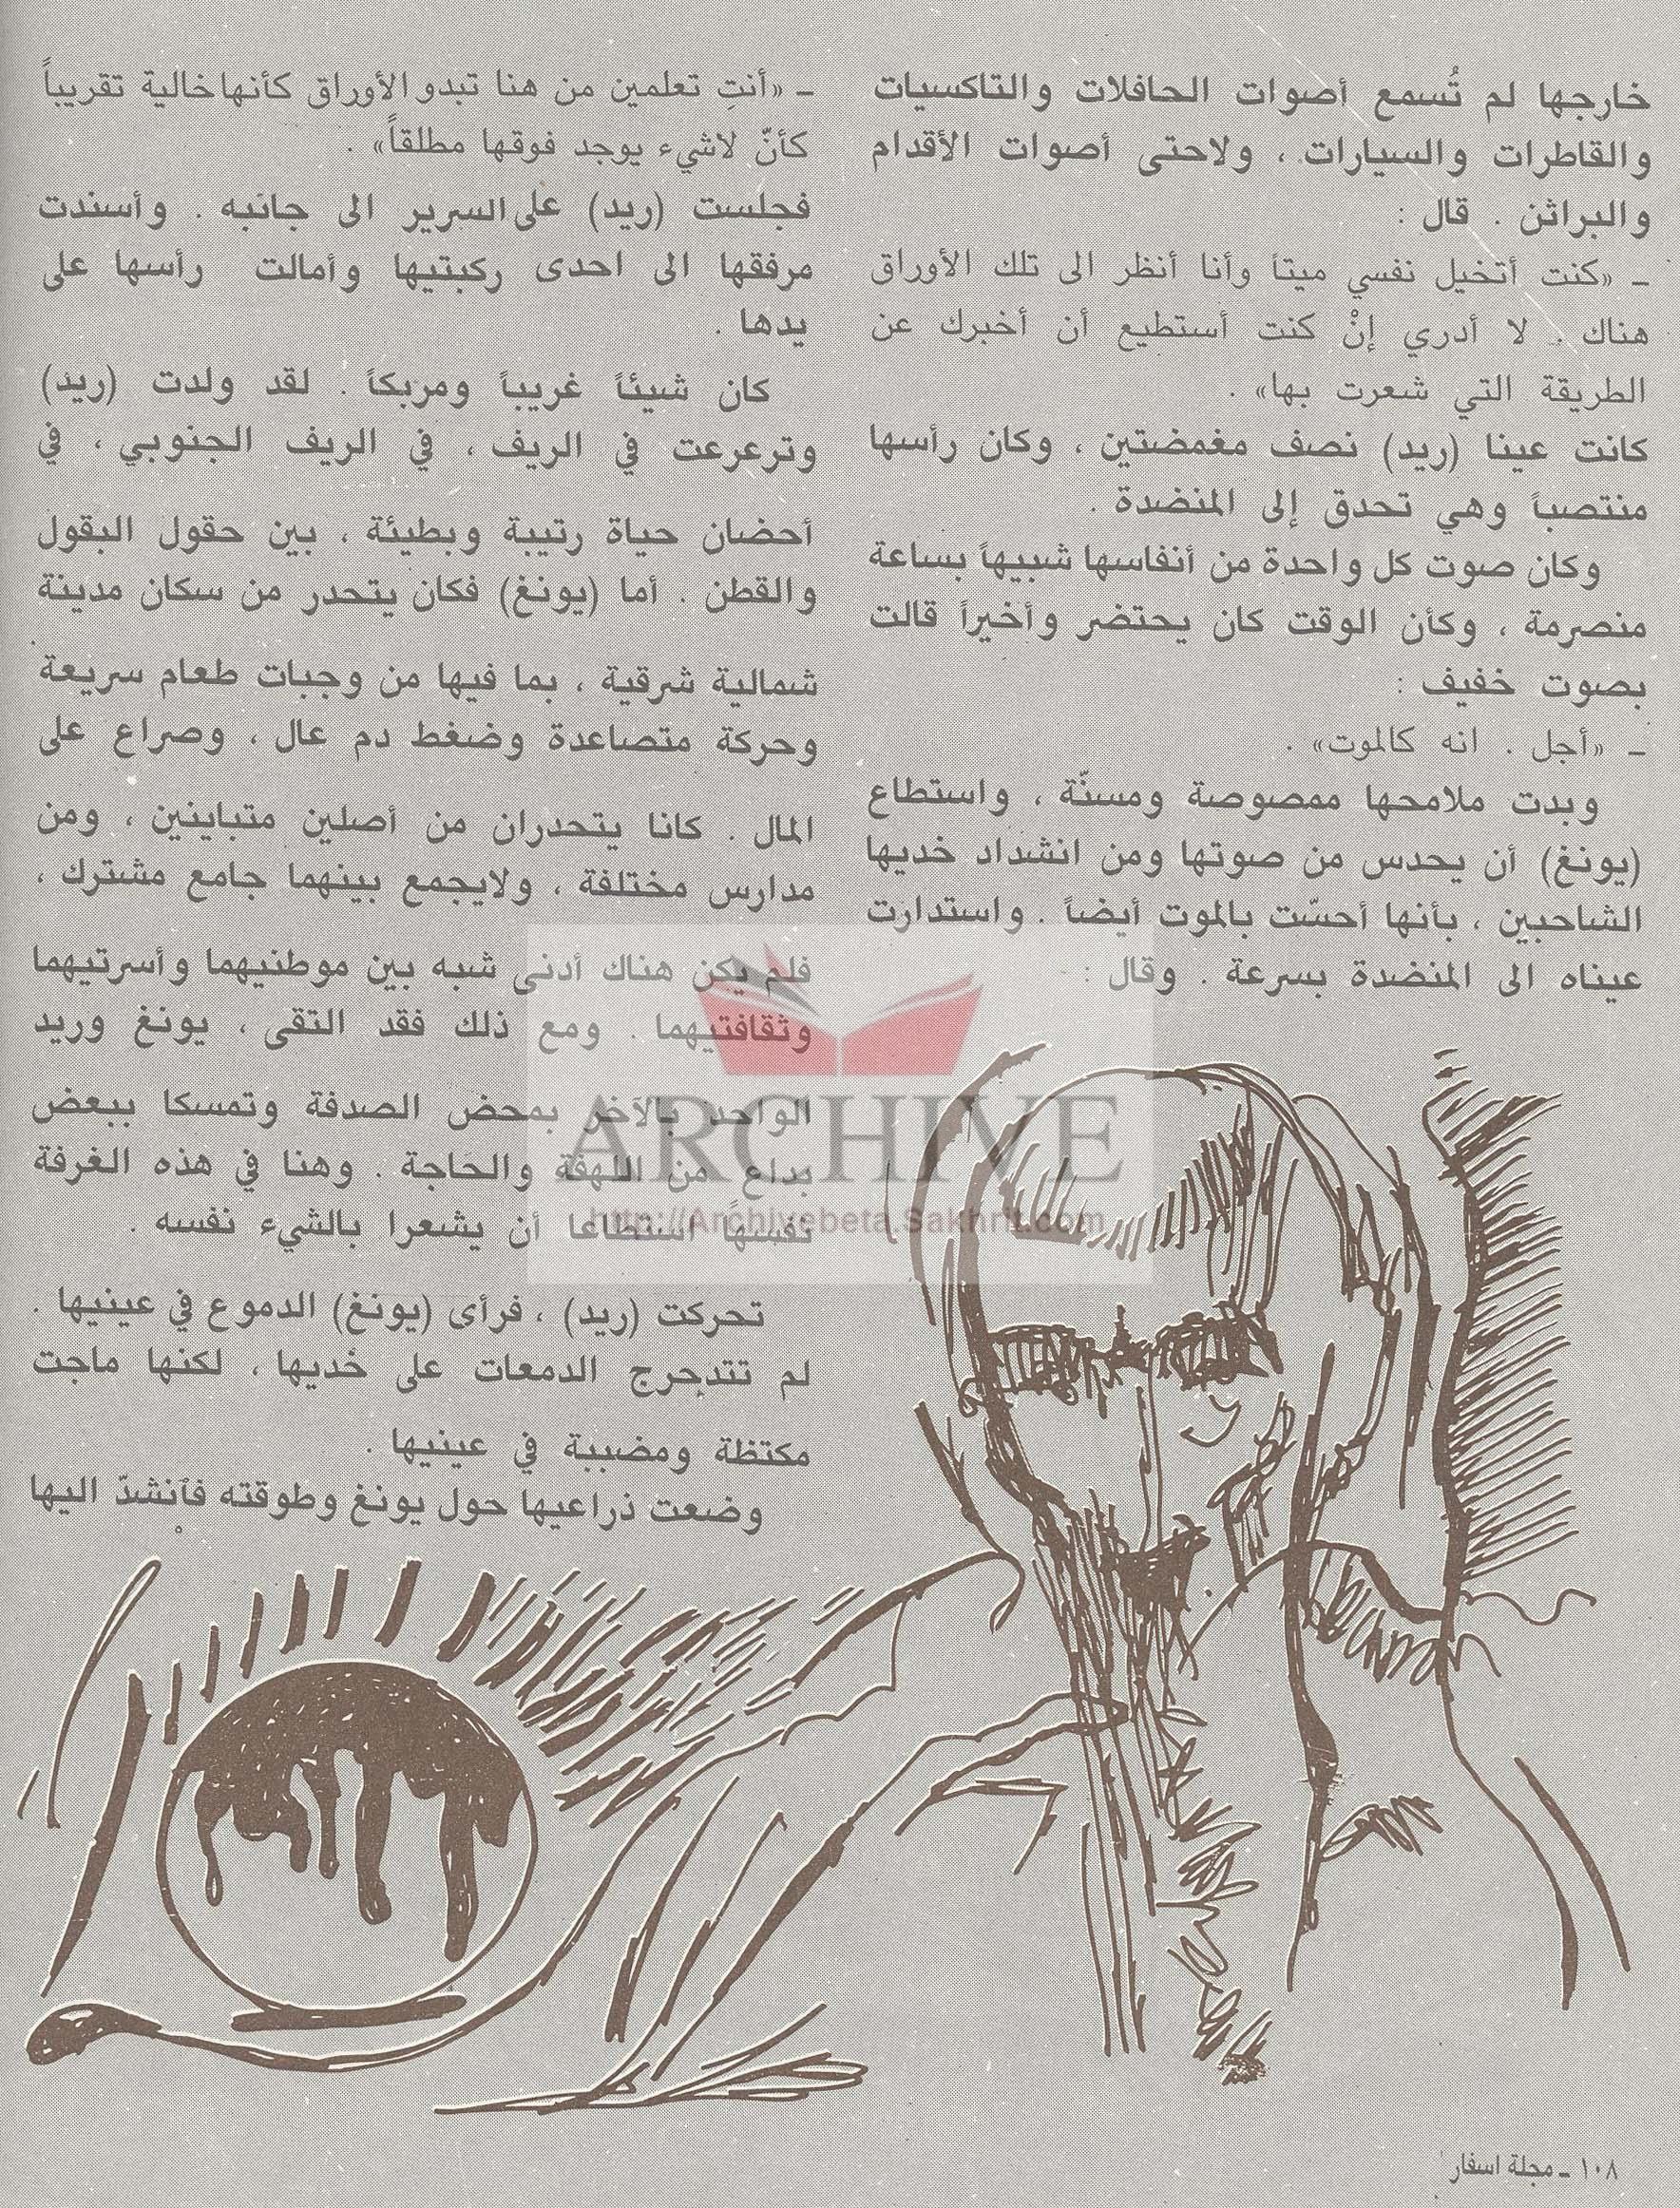 خارجها لم تُسمع أصوات الحافلات والتاكسيات
والقاطرات والسيارات ، ولاحتى أصوات الأقدام
والبراثن . قال :
ـ «كنت أتخيل نفسي ميتاً وأنا أنظر الى تلك الأوراق
هناك . لا أدري إنْ كنت أستطيع أن أخبرك عن
الطريقة التي شعرت بها» .
كانت عينا (ريد) نصف مغمضتين ، وكان رأسها
منتصباً وهي تحدق إلى المنضدة .
وكان صوت كل واحدة من أنفاسها شبيهاً بساعة
منصرمة ، وكأن الوقت كان يحتضر وأخيراً قالت
بصوت خفيف :
ـ «أجل . انه كالموت» .
وبدت ملامحها ممصوصة ومسنّة ، واستطاع
(يونغ) أن يحدس من صوتها ومن انشداد خديها
الشاحبين ، بأنها أحسّت بالموت أيضاً . واستدارت
عيناه الى المنضدة بسرعة . وقال :
ـ «أنتِ تعلمين من هنا تبدو الأوراق كأنها خالية تقريباً
كأنّ لاشيء يوجد فوقها مطلقاً» .
فجلست (ريد) على السرير الى جانبه . وأسندت
مرفقها الى احدى ركبتيها وأمالت رأسها على
يدها .
كان شيئاً غريباً ومربكاً . لقد ولدت (ريد)
وترعرعت في الريف ، في الريف الجنوبي ، في
أحضان حياة رتيبة وبطيئة ، بين حقول البقول
والقطن . أما (يونغ) فكان يتحدر من سكان مدينة
شمالية شرقية ، بما فيها من وجبات طعام سريعة
وحركة متصاعدة وضغط دم عال ، وصراع على
المال . كانا يتحدران من أصلين متباينين ، ومن
مدارس مختلفة ، ولايجمع بينهما جامع مشترك ،
فلم يكن هناك أدنى شبه بين موطنيهما وأسرتيهما
وثقافتيهما . ومع ذلك فقد التقى ، يونغ وريد
الواحد بالآخر بمحض الصدفة وتمسكا ببعض
بداع من اللهفة والحاجة . وهنا في هذه الغرفة
نفسها استطاعا أن يشعرا بالشيء نفسه .
تحركت (ريد) ، فرأى (يونغ) الدموع في عينيها .
لم تتدحرج الدمعات على خديها ، لكنها ماجت
مكتظة ومضببة في عينيها .
وضعت ذراعيها حول يونغ وطوقته فأنشدّ اليها
ARCHIVE
http://Archivebeta.Sakhrit.com
١٠٨ ـ مجلة اسفار